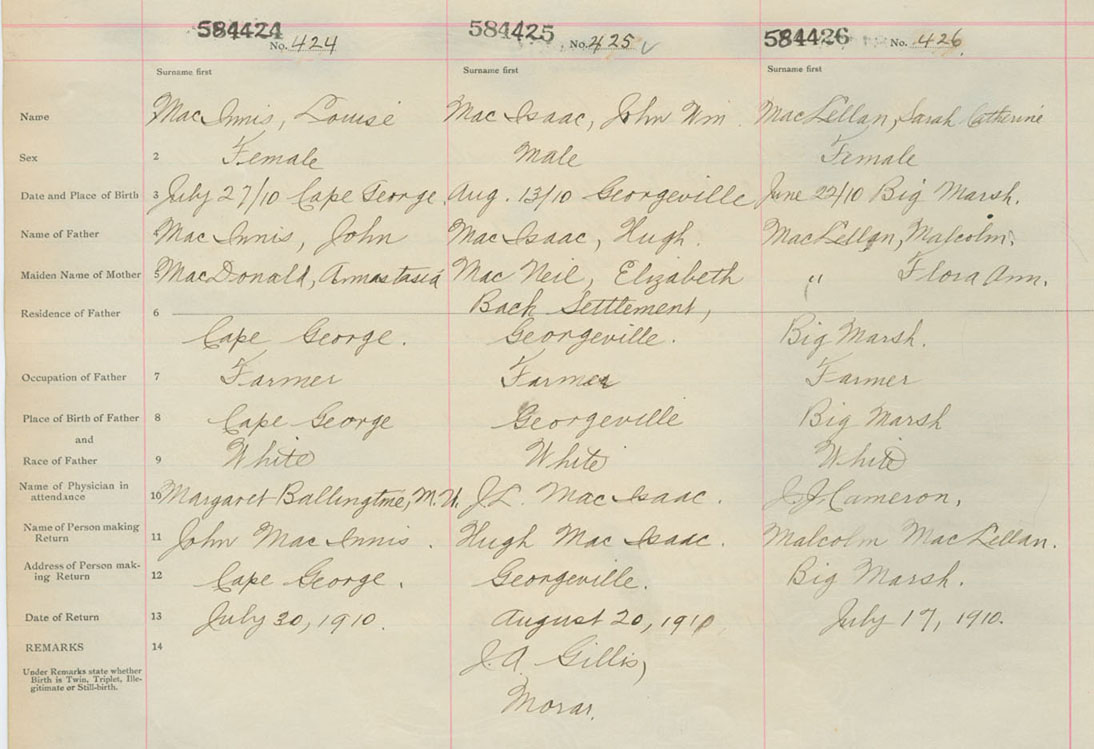 584424 No. 424 584425 No. 425 584426 No. 426
Surname first Surname first Surname first
Name Mac Innis, Louise Mac Isaac, John Wm MacLellan, Sarah Catherine
Sex 2 Female Male Female
Date and Place of Birth 3 July 27/10 Cape George. Aug. 13/10 Georgeville June 22/10 Big Marsh.
Name of Father 4 Mac Innis, John Mac Isaac, Hugh. MacLellan, Malcolm.
Maiden Name of Mother 5 MacDonald, Annastasia Mac Neil, Elizabeth " Flora Ann.
Back Settlement,
Residence of Father 6 Cape George. Georgeville. Big Marsh.
Occupation of Father 7 Farmer Farmer Farmer
Place of Birth of Father 8 Cape George Georgeville Big Marsh
and
Race of Father 9 White White White
Name of Physician in
attendance 10 Margaret J.L. Mac Isaac. J.J. Cameron.
Name of Person making
Return 11 John Mac Innis. Hugh Mac Isaac. Malcolm MacLellan.
Address of Person mak-
ing Return 12 Cape George. Georgeville. Big Marsh.
Date of Return 13 July 30, 1910. August 20, 1910 July 17, 1910.
REMARKS 14 J.A Gillis,
Under Remarks state whether
Birth is Twin, Triplet, Ille-
gitimate or Still-birth.
Morar.